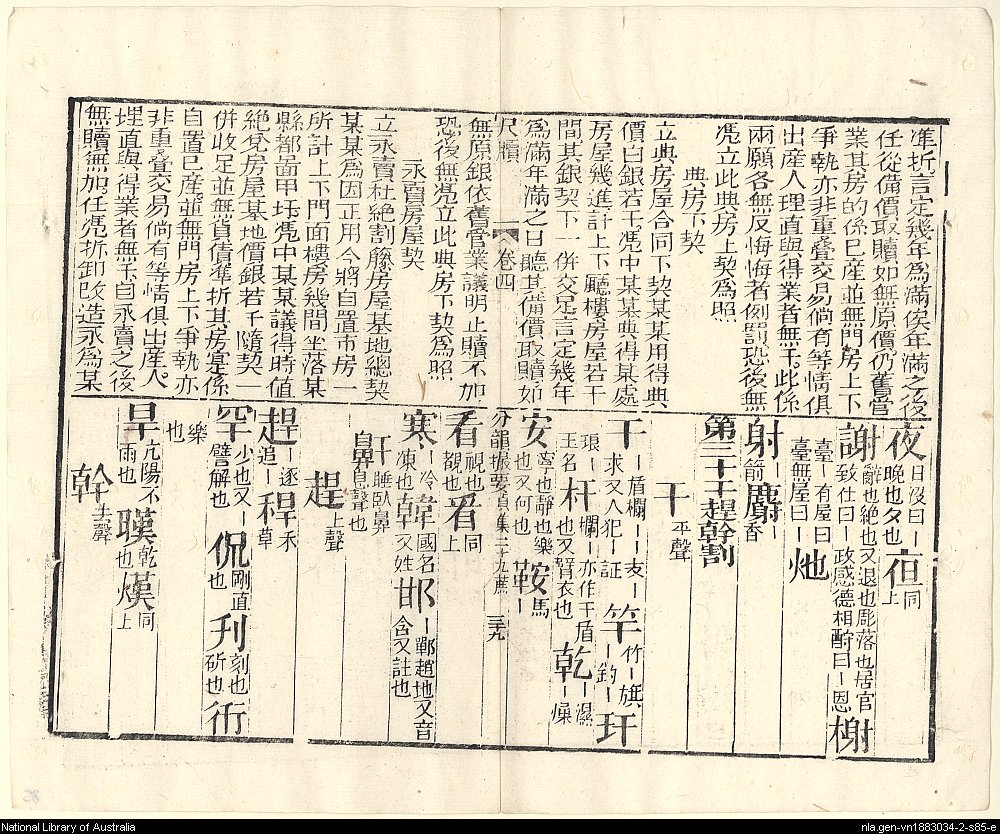 準折言定幾年為滿俟年滿之後
任從備價取贖如無原價仍舊管
業其房的係已產並無門房上下
爭執亦非重疊交易倘有等情俱
出產人理直與得業者無干此係
兩願各無反悔悔者例罰恐後無
凴立此典房上契為照
典房下契
立典房屋合同下契某某用得典
價白銀若干凴中某某典得某處
房屋幾進計上下廳樓房屋若干
間其銀契下一併交足言定幾年
為滿年滿之日聽其備價取贖如
尺牘 卷四
無原銀依舊管業議明止贖不加
恐後無凴立此典房下契為照
永賣房屋契
立永賣杜絕割籐房屋基地總契
某某為因正用今將自置市房一
所計上下門面樓房幾間坐落某
縣都啚甲圩凴中某某議得時值
絕兌房屋基地價銀若干隨契一
併收足並無負債準折其房寔係
自置已產並無門房上下爭執亦
非重疊交易倘有等情俱出產人
理直與得業者無干自永賣之後
無贖無加任凴折卸改造永為某
夜日沒曰丨晚也夕也㐌同上
謝辭也絶也又退也彫落也居官致仕曰丨政感德相酧曰丨恩榭
臺丨有屋曰臺無屋曰丨灺
射箭麝香
第二十干趕幹割
干平聲
干丨盾欄丨丨支丨求又人犯丨証竿竹丨旗丨釣丨玕
琅丨王名杆欄丨亦作干盾也又臂衣也乾丨濕丨燥
安寧也靜也樂也又何也鞍馬丨
分韻撮要貞集二十九蔗 三十九
看視也覩也㸔同上
寒丨冷凍也韓國名又姓邯丨鄲趙地又音含又註也
鼾睡臥鼻鼻息聲也
趕上聲
趕丨逐追丨稈禾草
罕少也又丨譬解也侃剛直也刋刻也斫也衎
樂也
旱亢陽不雨也暵乾也熯同上
幹去聲
National Library of Australia
nla.gen-vn1883034-2-s85-e